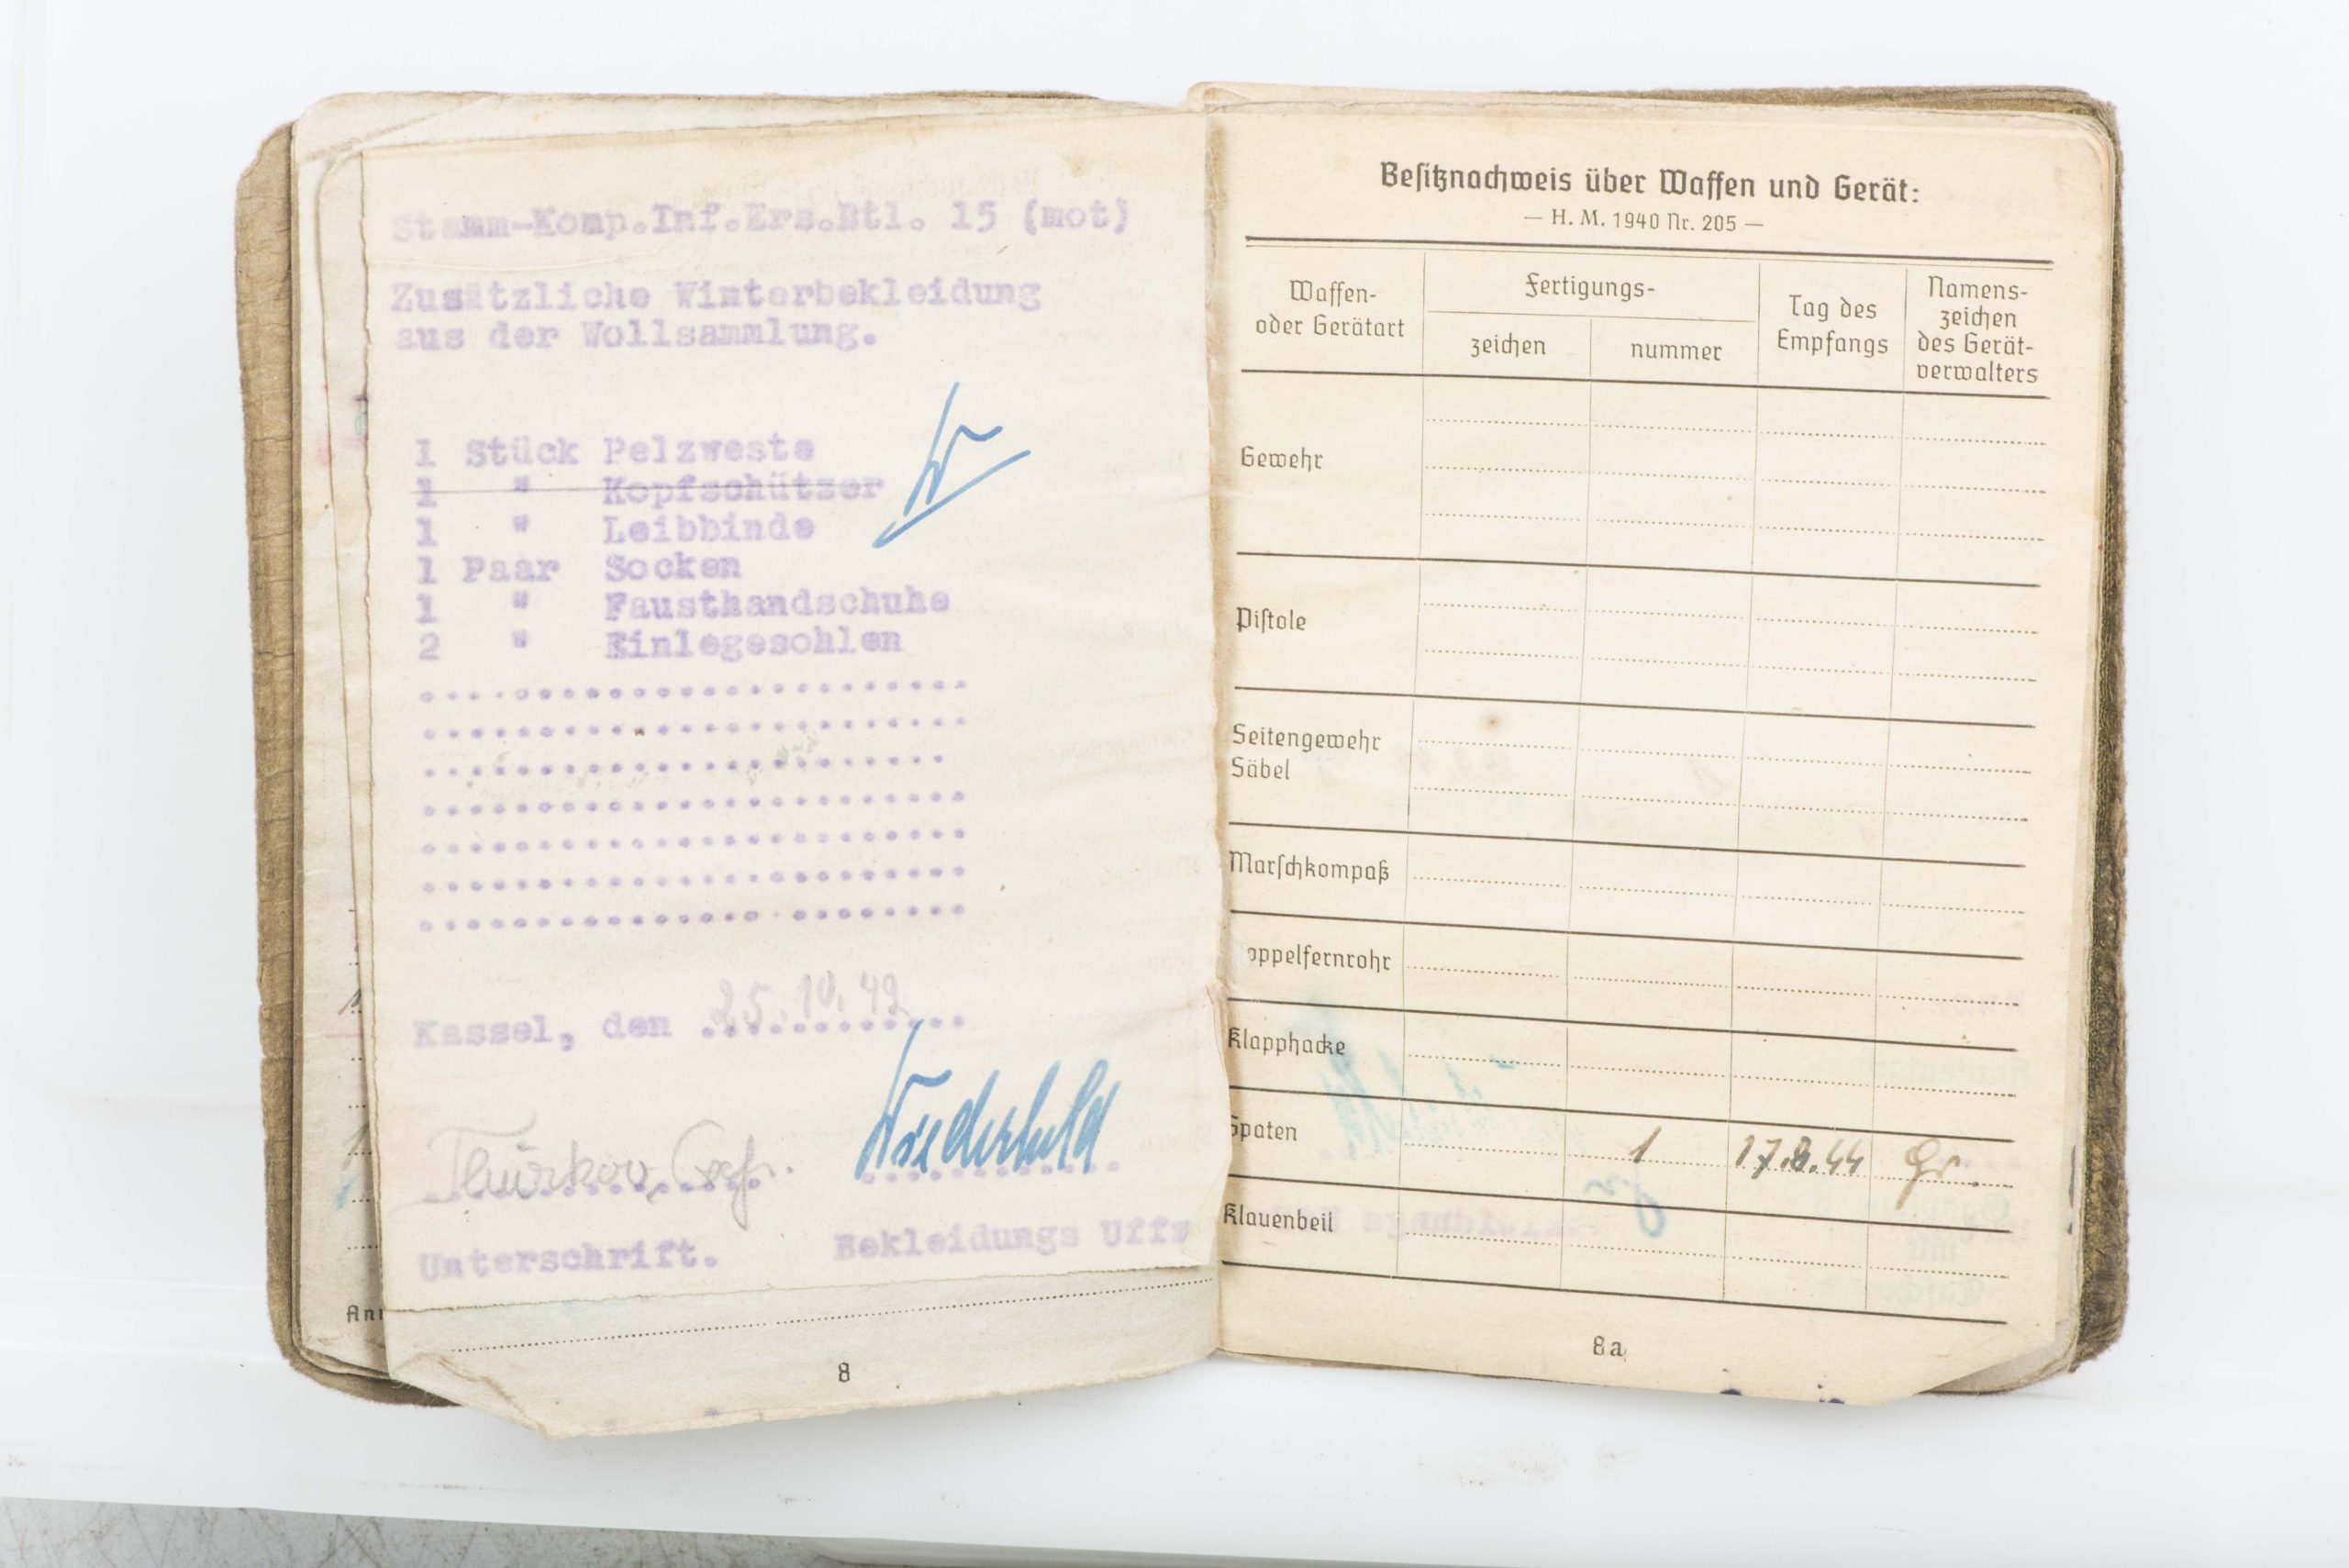 Stamm-Komp.Inf.Ers.Btl. 15 (mot)
Zusätzliche Winterbekleidung
aus der Wollsammlung.
1 Stück Pelzweste
1 " Kopfschützer
1 " Leibbinde
1 Paar Socken
1 " Fausthandschuhe
2 " Einlegesohlen
Kassel, den 25.10.42
Unterschrift. Bekleidungs Uffz
An
8
Besitznachweis über Waffen und Gerät:
— H. M. 1940 Nr. 205 —
Waffen-
oder Gerätart
Fertigungs-
zeichen
nummer
Tag des
Empfangs
Namens-
zeichen
des Gerät-
verwalters
Gewehr
Pistole
Seitengewehr
Säbel
Marschkompaß
oppelfernrohr
Klapphacke
Spaten 1 17.8.44 Gr.
Klauenbeil
8a